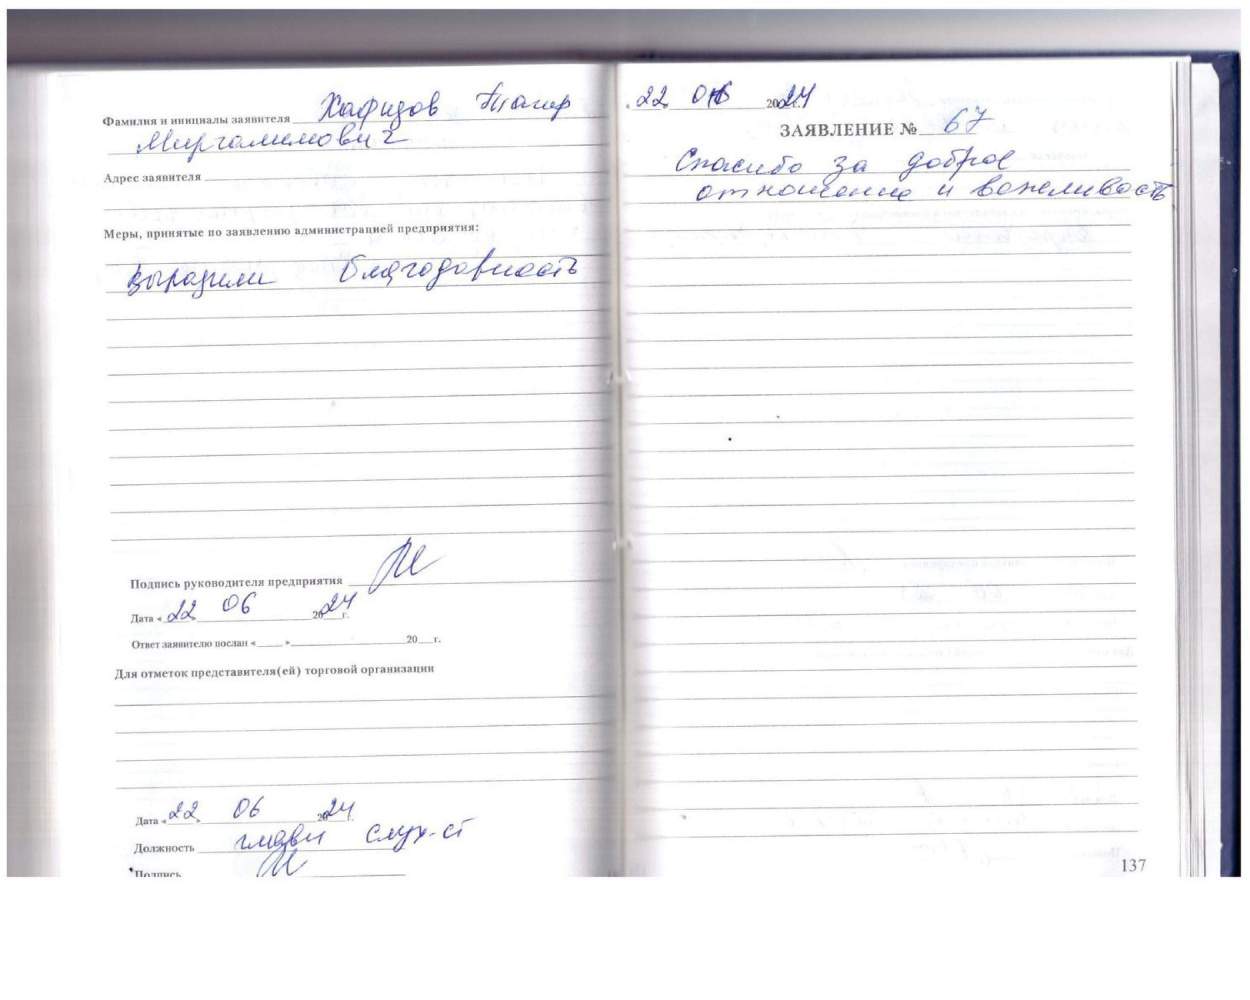 Фамилия и инициалы заявителя Хафизов Тагир
Миргалимович
Адрес заявителя
Меры, принятые по заявлению администрацией предприятия:
Выразили благодарность
Подпись руководителя предприятия
Дата « 22 » 06 2024 г.
Ответ заявителю послан « » 20 г.
Для отметок представителя(ей) торговой организации
Дата « 22 » 06 2024 г.
Должность главн спец-ст
Подпись
22 06 2024 г.
ЗАЯВЛЕНИЕ № 67
Спасибо за доброе
отношение и вежливость
137